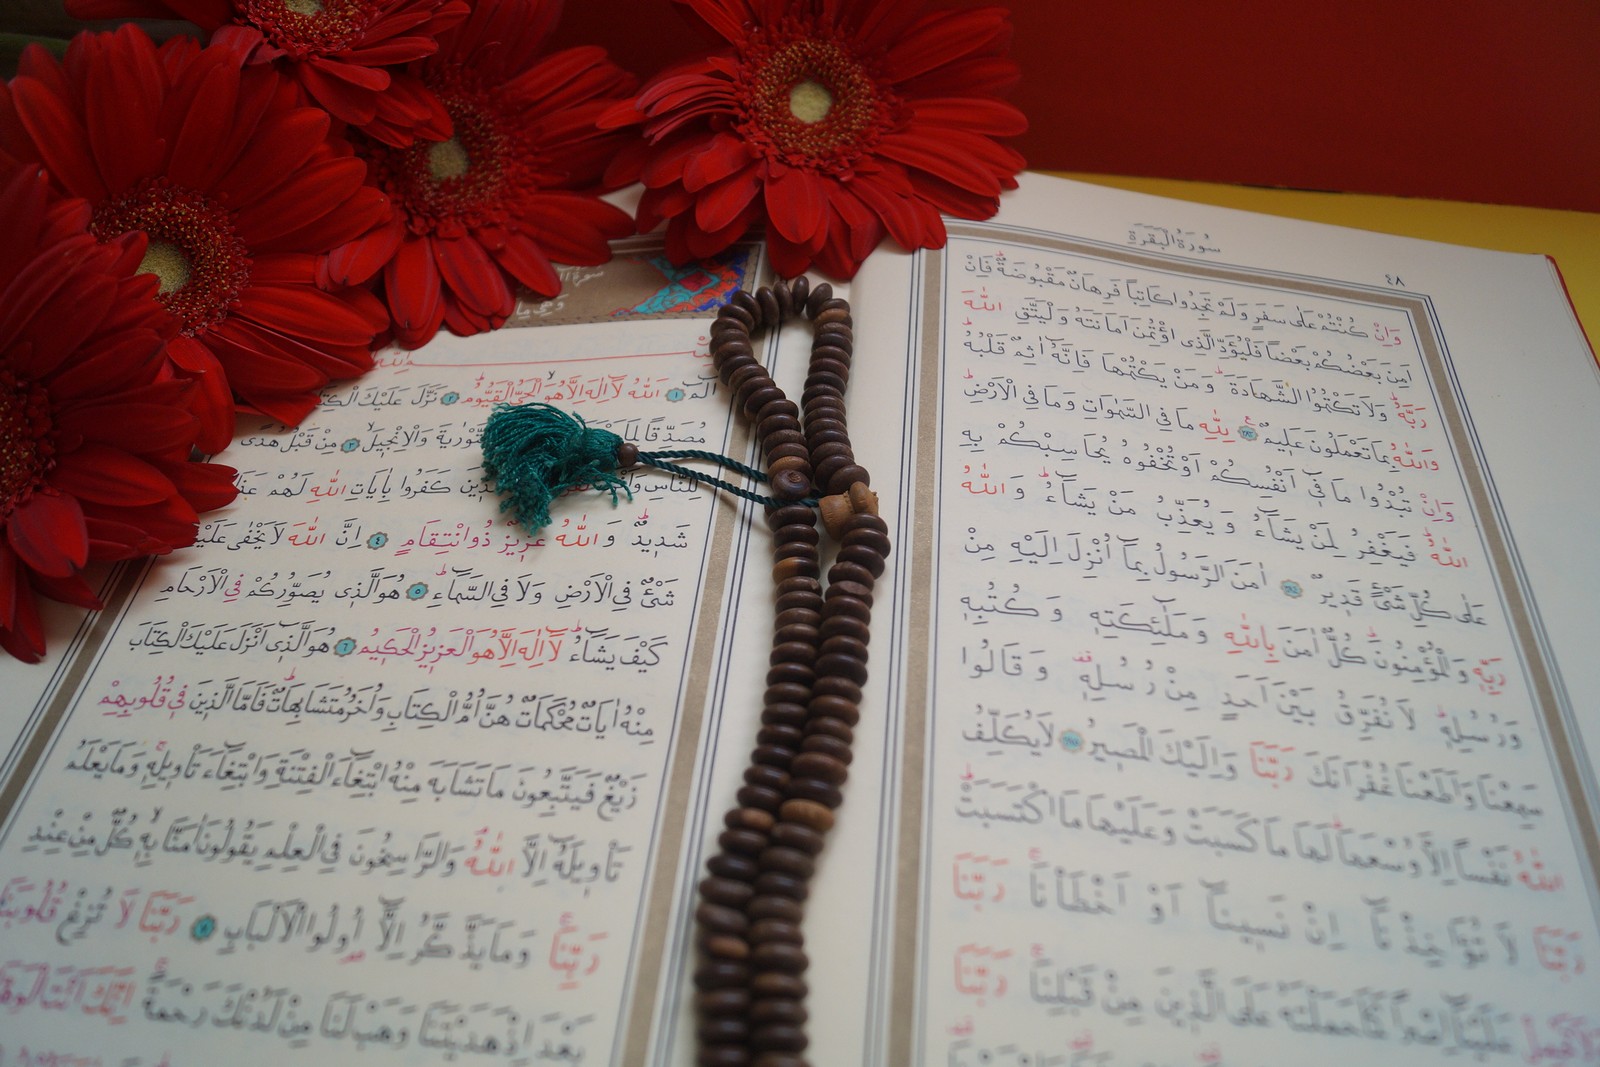 سُورَةُ الْبَقَرَةِ
٤٨
وَاِنْ كُنْتُمْ عَلٰى سَفَرٍ وَلَمْ تَجِدُوا كَاتِباً فَرِهَانٌ مَقْبُوضَةٌ فَاِنْ
اَمِنَ بَعْضُكُمْ بَعْضاً فَلْيُؤَدِّ الَّذِى اؤْتُمِنَ اَمَانَتَهُ وَلْيَتَّقِ اللّٰهَ
رَبَّهُ وَلَا تَكْتُمُوا الشَّهَادَةَ وَمَنْ يَكْتُمْهَا فَاِنَّهُٓ اٰثِمٌ قَلْبُهُ
وَاللّٰهُ بِمَا تَعْمَلُونَ عَلِيمٌ ٢٨٣ لِلّٰهِ مَا فِى السَّمٰوَاتِ وَمَا فِى الْاَرْضِ
وَاِنْ تُبْدُوا مَا فِٓى اَنْفُسِكُمْ اَوْ تُخْفُوهُ يُحَاسِبْكُمْ بِهِ
اللّٰهُ فَيَغْفِرُ لِمَنْ يَشَٓاءُ وَيُعَذِّبُ مَنْ يَشَٓاءُ وَاللّٰهُ
عَلٰى كُلِّ شَىْءٍ قَدِيرٌ ٢٨٤ اٰمَنَ الرَّسُولُ بِمَٓا اُنْزِلَ اِلَيْهِ مِنْ
رَبِّهِ وَالْمُؤْمِنُونَ كُلٌّ اٰمَنَ بِاللّٰهِ وَمَلٰٓئِكَتِهِ وَكُتُبِهِ
وَرُسُلِهِ لَا نُفَرِّقُ بَيْنَ اَحَدٍ مِنْ رُسُلِهِ وَقَالُوا
سَمِعْنَا وَاَطَعْنَا غُفْرَانَكَ رَبَّنَا وَاِلَيْكَ الْمَصِيرُ ٢٨٥ لَا يُكَلِّفُ
اللّٰهُ نَفْساً اِلَّا وُسْعَهَا لَهَا مَا كَسَبَتْ وَعَلَيْهَا مَا اكْتَسَبَتْ
رَبَّنَا لَا تُؤَاخِذْنَٓا اِنْ نَسِينَٓا اَوْ اَخْطَأْنَا رَبَّنَا
وَلَا تَحْمِلْ عَلَيْنَٓا اِصْراً كَمَا حَمَلْتَهُ عَلَى الَّذِينَ مِنْ قَبْلِنَا رَبَّنَا
سُورَةُ
وَهِىَ
الٓمٓ ١ اَللّٰهُ لَٓا اِلٰهَ اِلَّا هُوَ الْحَىُّ الْقَيُّومُ ٢ نَزَّلَ عَلَيْكَ
مُصَدِّقاً لِمَا التَّوْرٰيةَ وَالْاِنْجِيلَ ٣ مِنْ قَبْلُ هُدًى
لِلنَّاسِ كَفَرُوا بِاٰيَاتِ اللّٰهِ لَهُمْ
شَدِيدٌ وَاللّٰهُ عَزِيزٌ ذُو انْتِقَامٍ ٤ اِنَّ اللّٰهَ لَا يَخْفٰى
شَىْءٌ فِى الْاَرْضِ وَلَا فِى السَّمَٓاءِ ٥ هُوَ الَّذِى يُصَوِّرُكُمْ فِى الْاَرْحَامِ
كَيْفَ يَشَٓاءُ لَٓا اِلٰهَ اِلَّا هُوَ الْعَزِيزُ الْحَكِيمُ ٦ هُوَ الَّذِٓى اَنْزَلَ عَلَيْكَ الْكِتَابَ
مِنْهُ اٰيَاتٌ مُحْكَمَاتٌ هُنَّ اُمُّ الْكِتَابِ وَاُخَرُ مُتَشَابِهَاتٌ فَاَمَّا الَّذِينَ فِى قُلُوبِهِمْ
زَيْغٌ فَيَتَّبِعُونَ مَا تَشَابَهَ مِنْهُ ابْتِغَٓاءَ الْفِتْنَةِ وَابْتِغَٓاءَ تَأْوِيلِهِ وَمَا يَعْلَمُ
تَأْوِيلَهُٓ اِلَّا اللّٰهُ وَالرَّاسِخُونَ فِى الْعِلْمِ يَقُولُونَ اٰمَنَّا بِهِ كُلٌّ مِنْ عِنْدِ
رَبِّنَا وَمَا يَذَّكَّرُ اِلَّٓا اُولُوا الْاَلْبَابِ رَبَّنَا لَا تُزِغْ قُلُوبَنَا
بَعْدَ اِذْ هَدَيْتَنَا وَهَبْ لَنَا مِنْ لَدُنْكَ رَحْمَةً اِنَّكَ اَنْتَ